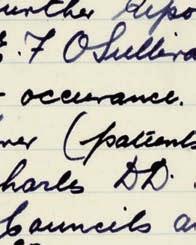 further depo
E. F O'Sulliva
- occurance.
ner (patients
Charles D.D.
Councils an